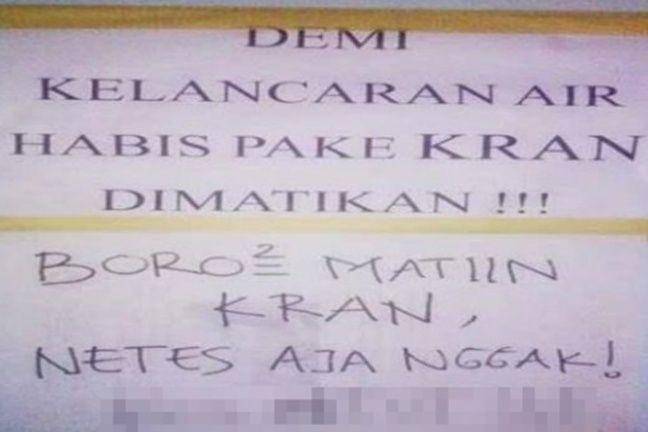 DEMI
KELANCARAN AIR
HABIS PAKE KRAN
DIMATIKAN !!!
BORO² MATIIN
KRAN,
NETES AJA NGGAK!